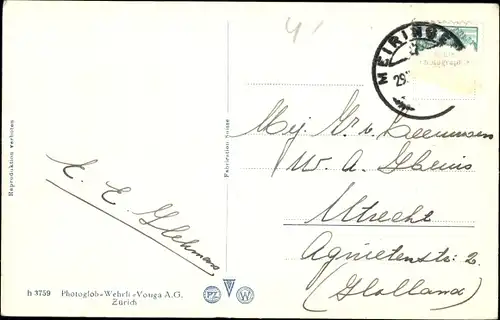 MEIRINGEN
29.
Mej. Gr. v.
W. A.
Utrecht
Agnietenstr. 2
(Holland)
E. E.
Reproduktion verboten
Fabrication Suisse
h 3759 Photoglob-Wehrli-Vouga A.G.
Zürich
PZ V W